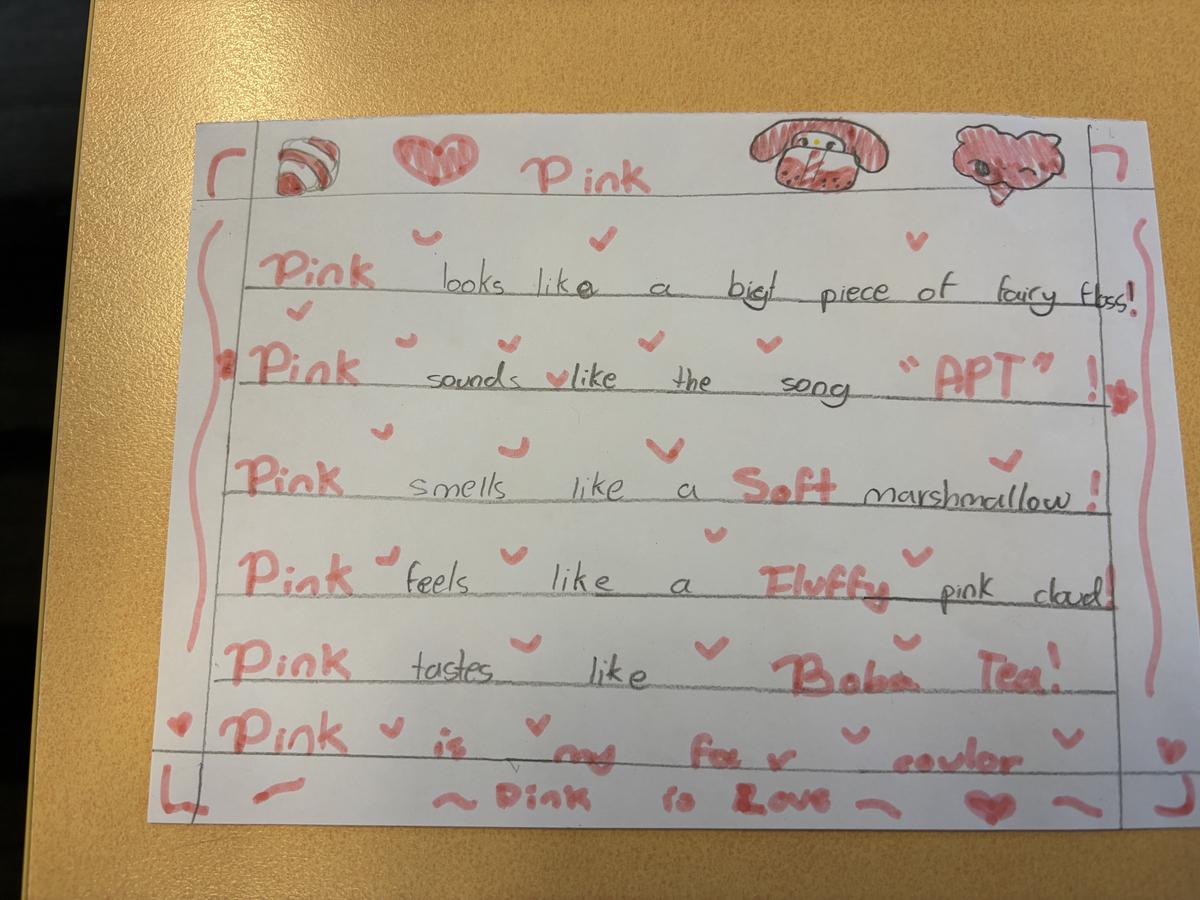 Pink
Pink looks like a bigt piece of fairy floss!
Pink sounds like the song "APT" !
Pink smells like a Soft marshmallow !
Pink feels like a Fluffy pink cloud!
Pink tastes like Boba Tea!
Pink is my fav coulor
~ Pink is Love ~